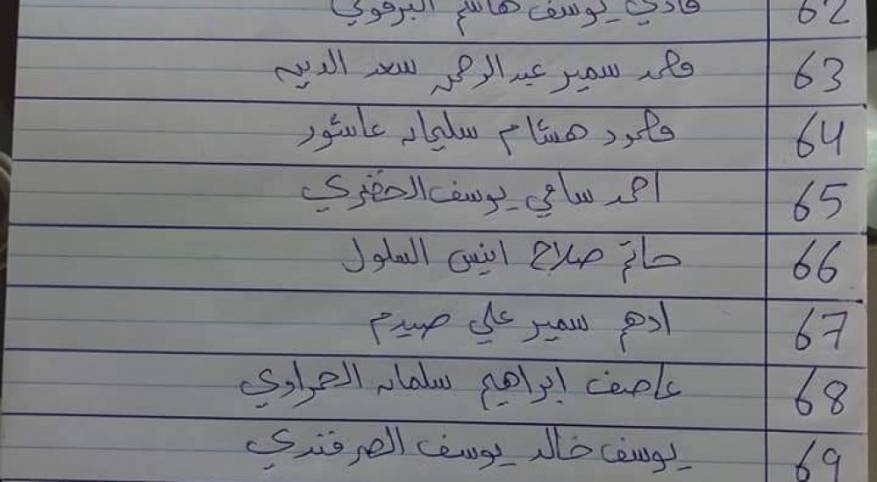 62 فادي يوسف هاشم البرقوني
63 محمد سمير عبد الرحمن سعد الديه
64 محمود هشام سليمان عاشور
65 احمد سامي يوسف الحضري
66 حاتم صلاح انيس السلول
67 ادهم سمير علي صيدم
68 عاصف ابراهيم سلمان الحمراوي
69 يوسف خالد يوسف الصرفندي